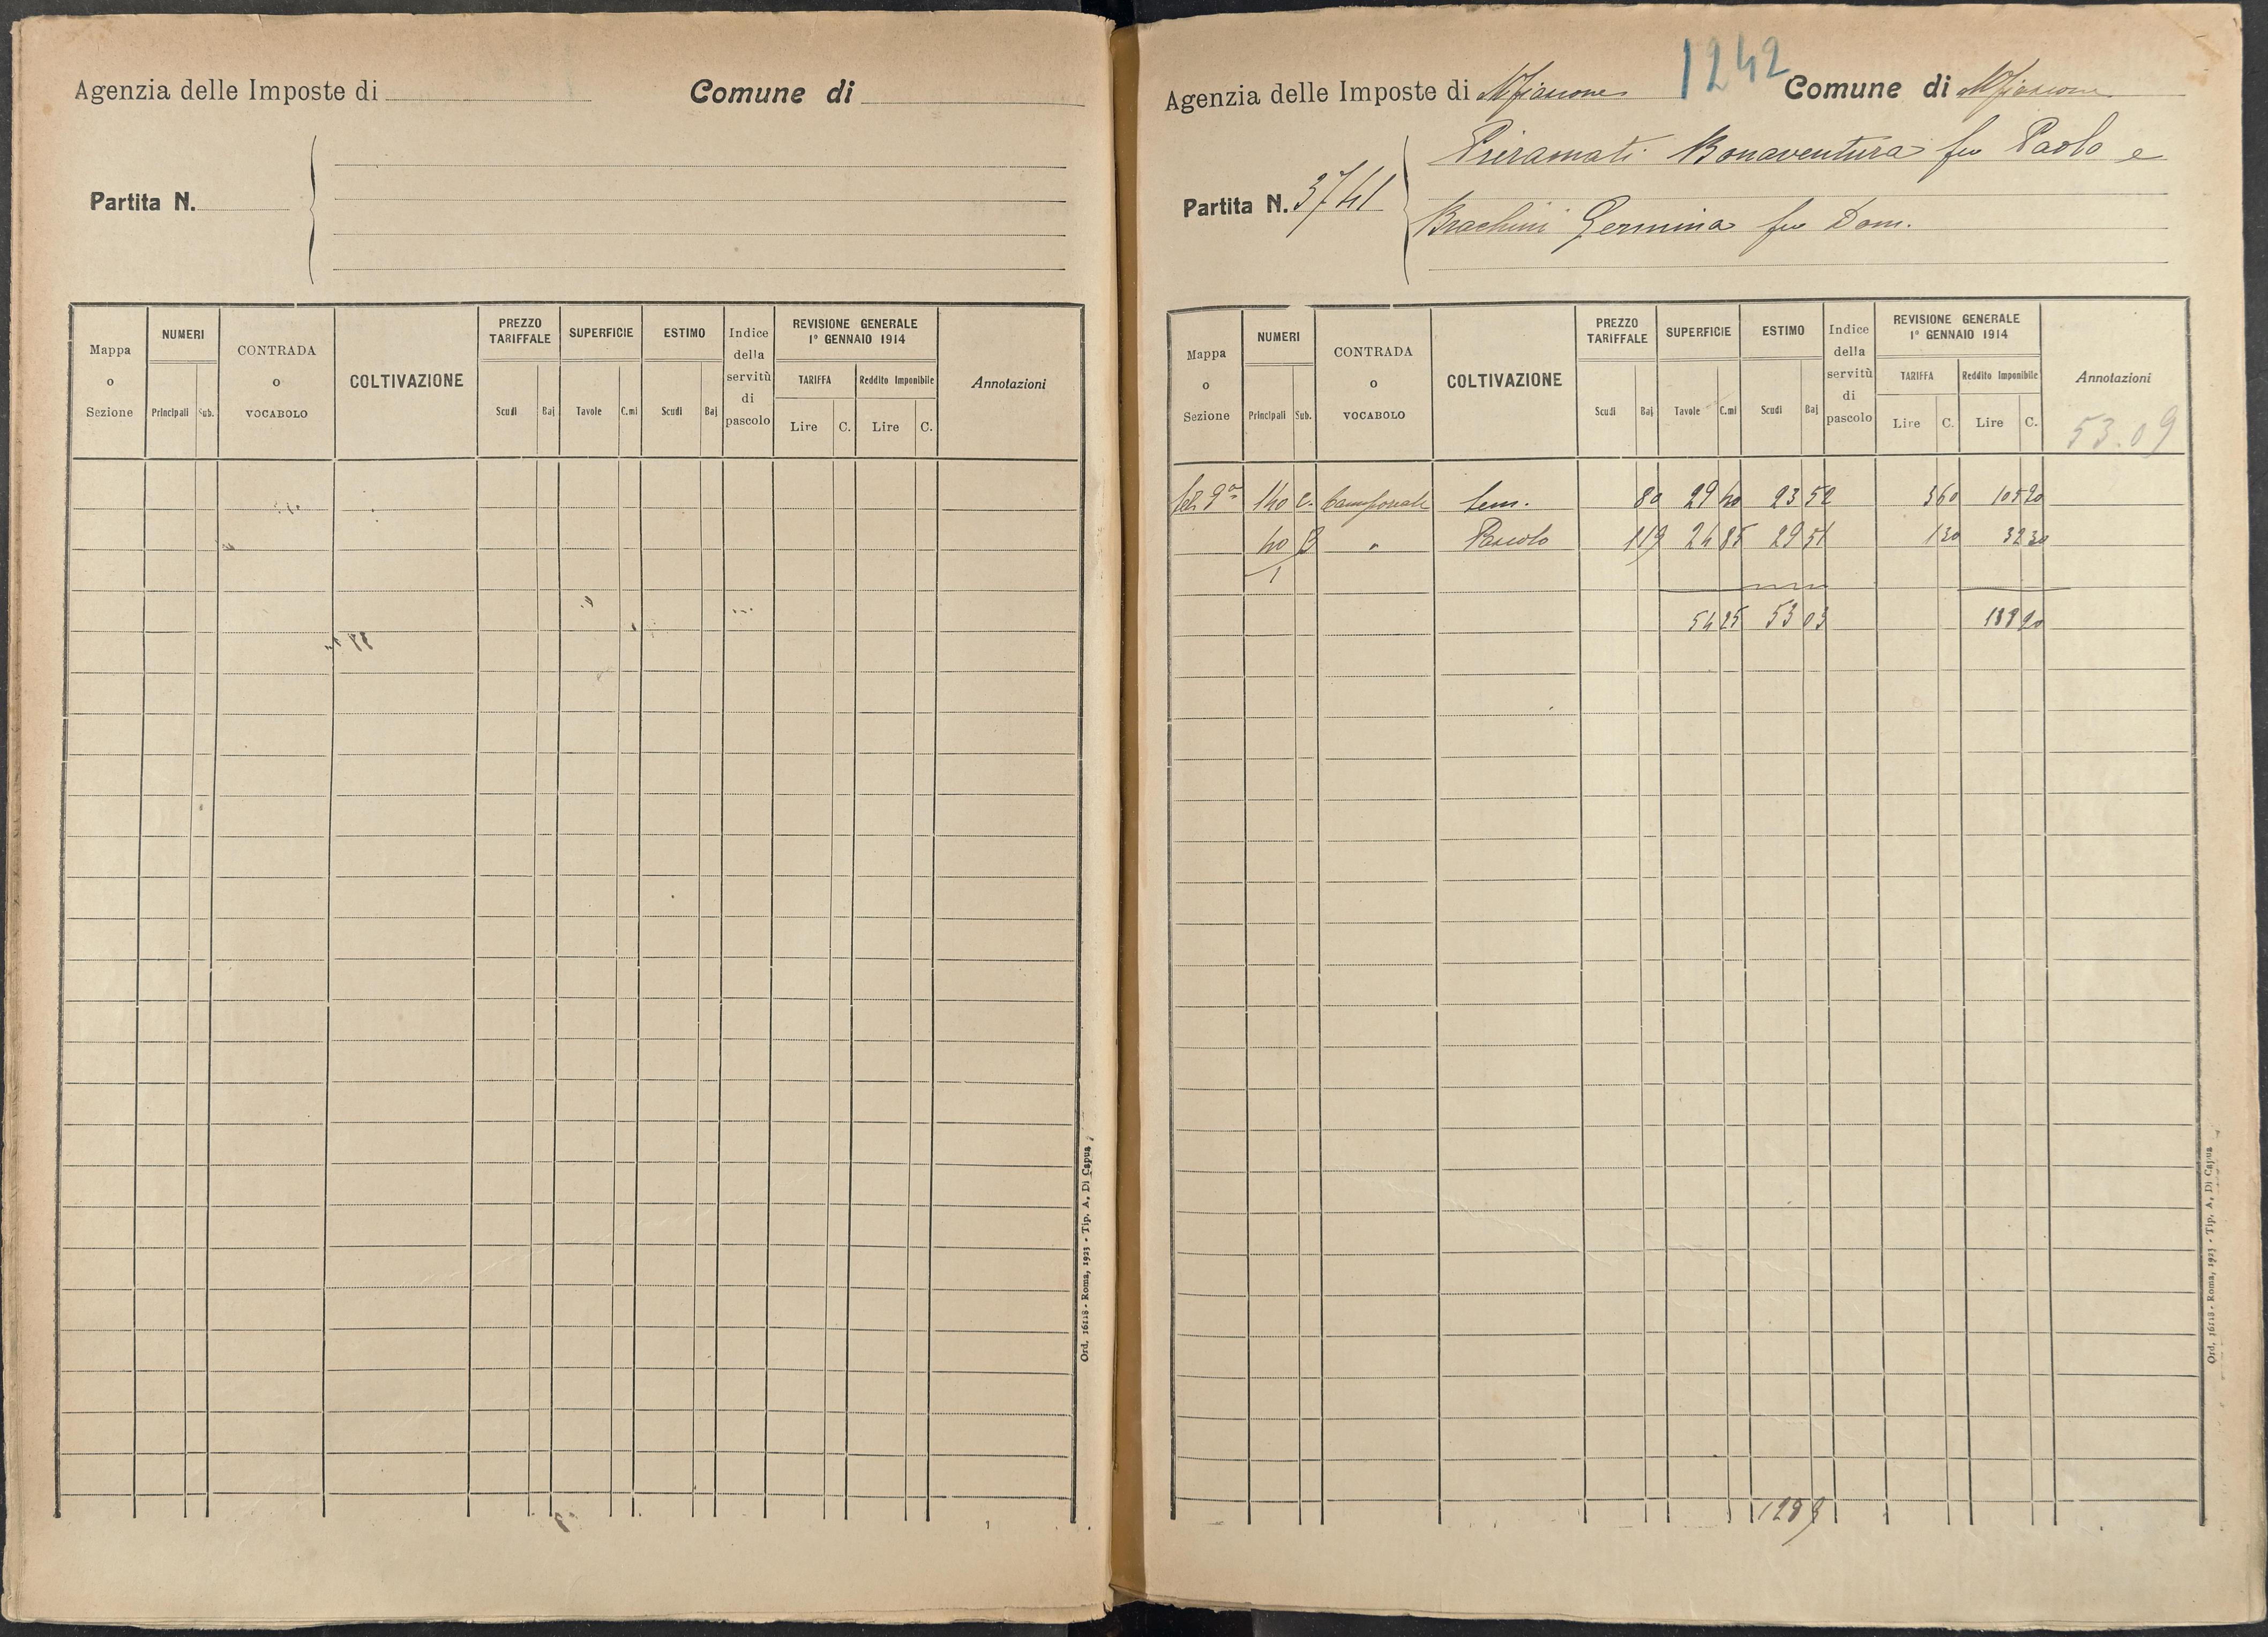 Agenzia delle Imposte di
Comune di
Partita N.
Mappa o Sezione
NUMERI
Principali Sub.
CONTRADA o VOCABOLO
COLTIVAZIONE
PREZZO TARIFFALE
Scudi Baj
SUPERFICIE
Tavole C.mi
ESTIMO
Scudi Baj
Indice della servitù di pascolo
REVISIONE GENERALE
1° GENNAIO 1914
TARIFFA Reddito Imponibile
Lire C. Lire C.
Annotazioni
Ord. 16118 - Roma, 1923 - Tip. A. Di Capua
1242
Agenzia delle Imposte di Mfiascone
Comune di Mfiascone
Partita N. 3741
Bonaventura fu Paolo e
Brachini Germina fu Dom.
Mappa o Sezione
NUMERI
Principali Sub.
CONTRADA o VOCABOLO
COLTIVAZIONE
PREZZO TARIFFALE
Scudi Baj
SUPERFICIE
Tavole C.mi
ESTIMO
Scudi Baj
Indice della servitù di pascolo
REVISIONE GENERALE
1° GENNAIO 1914
TARIFFA Reddito Imponibile
Lire C. Lire C.
Annotazioni
53.09
9a 140 Sem. 80 29 40 23 52 3 60 105 20
40 B " Pascolo 1 19 24 85 29 51 1 30 32 30
1
54 25 53 03
1289
Ord. 16118 - Roma, 1923 - Tip. A. Di Capua